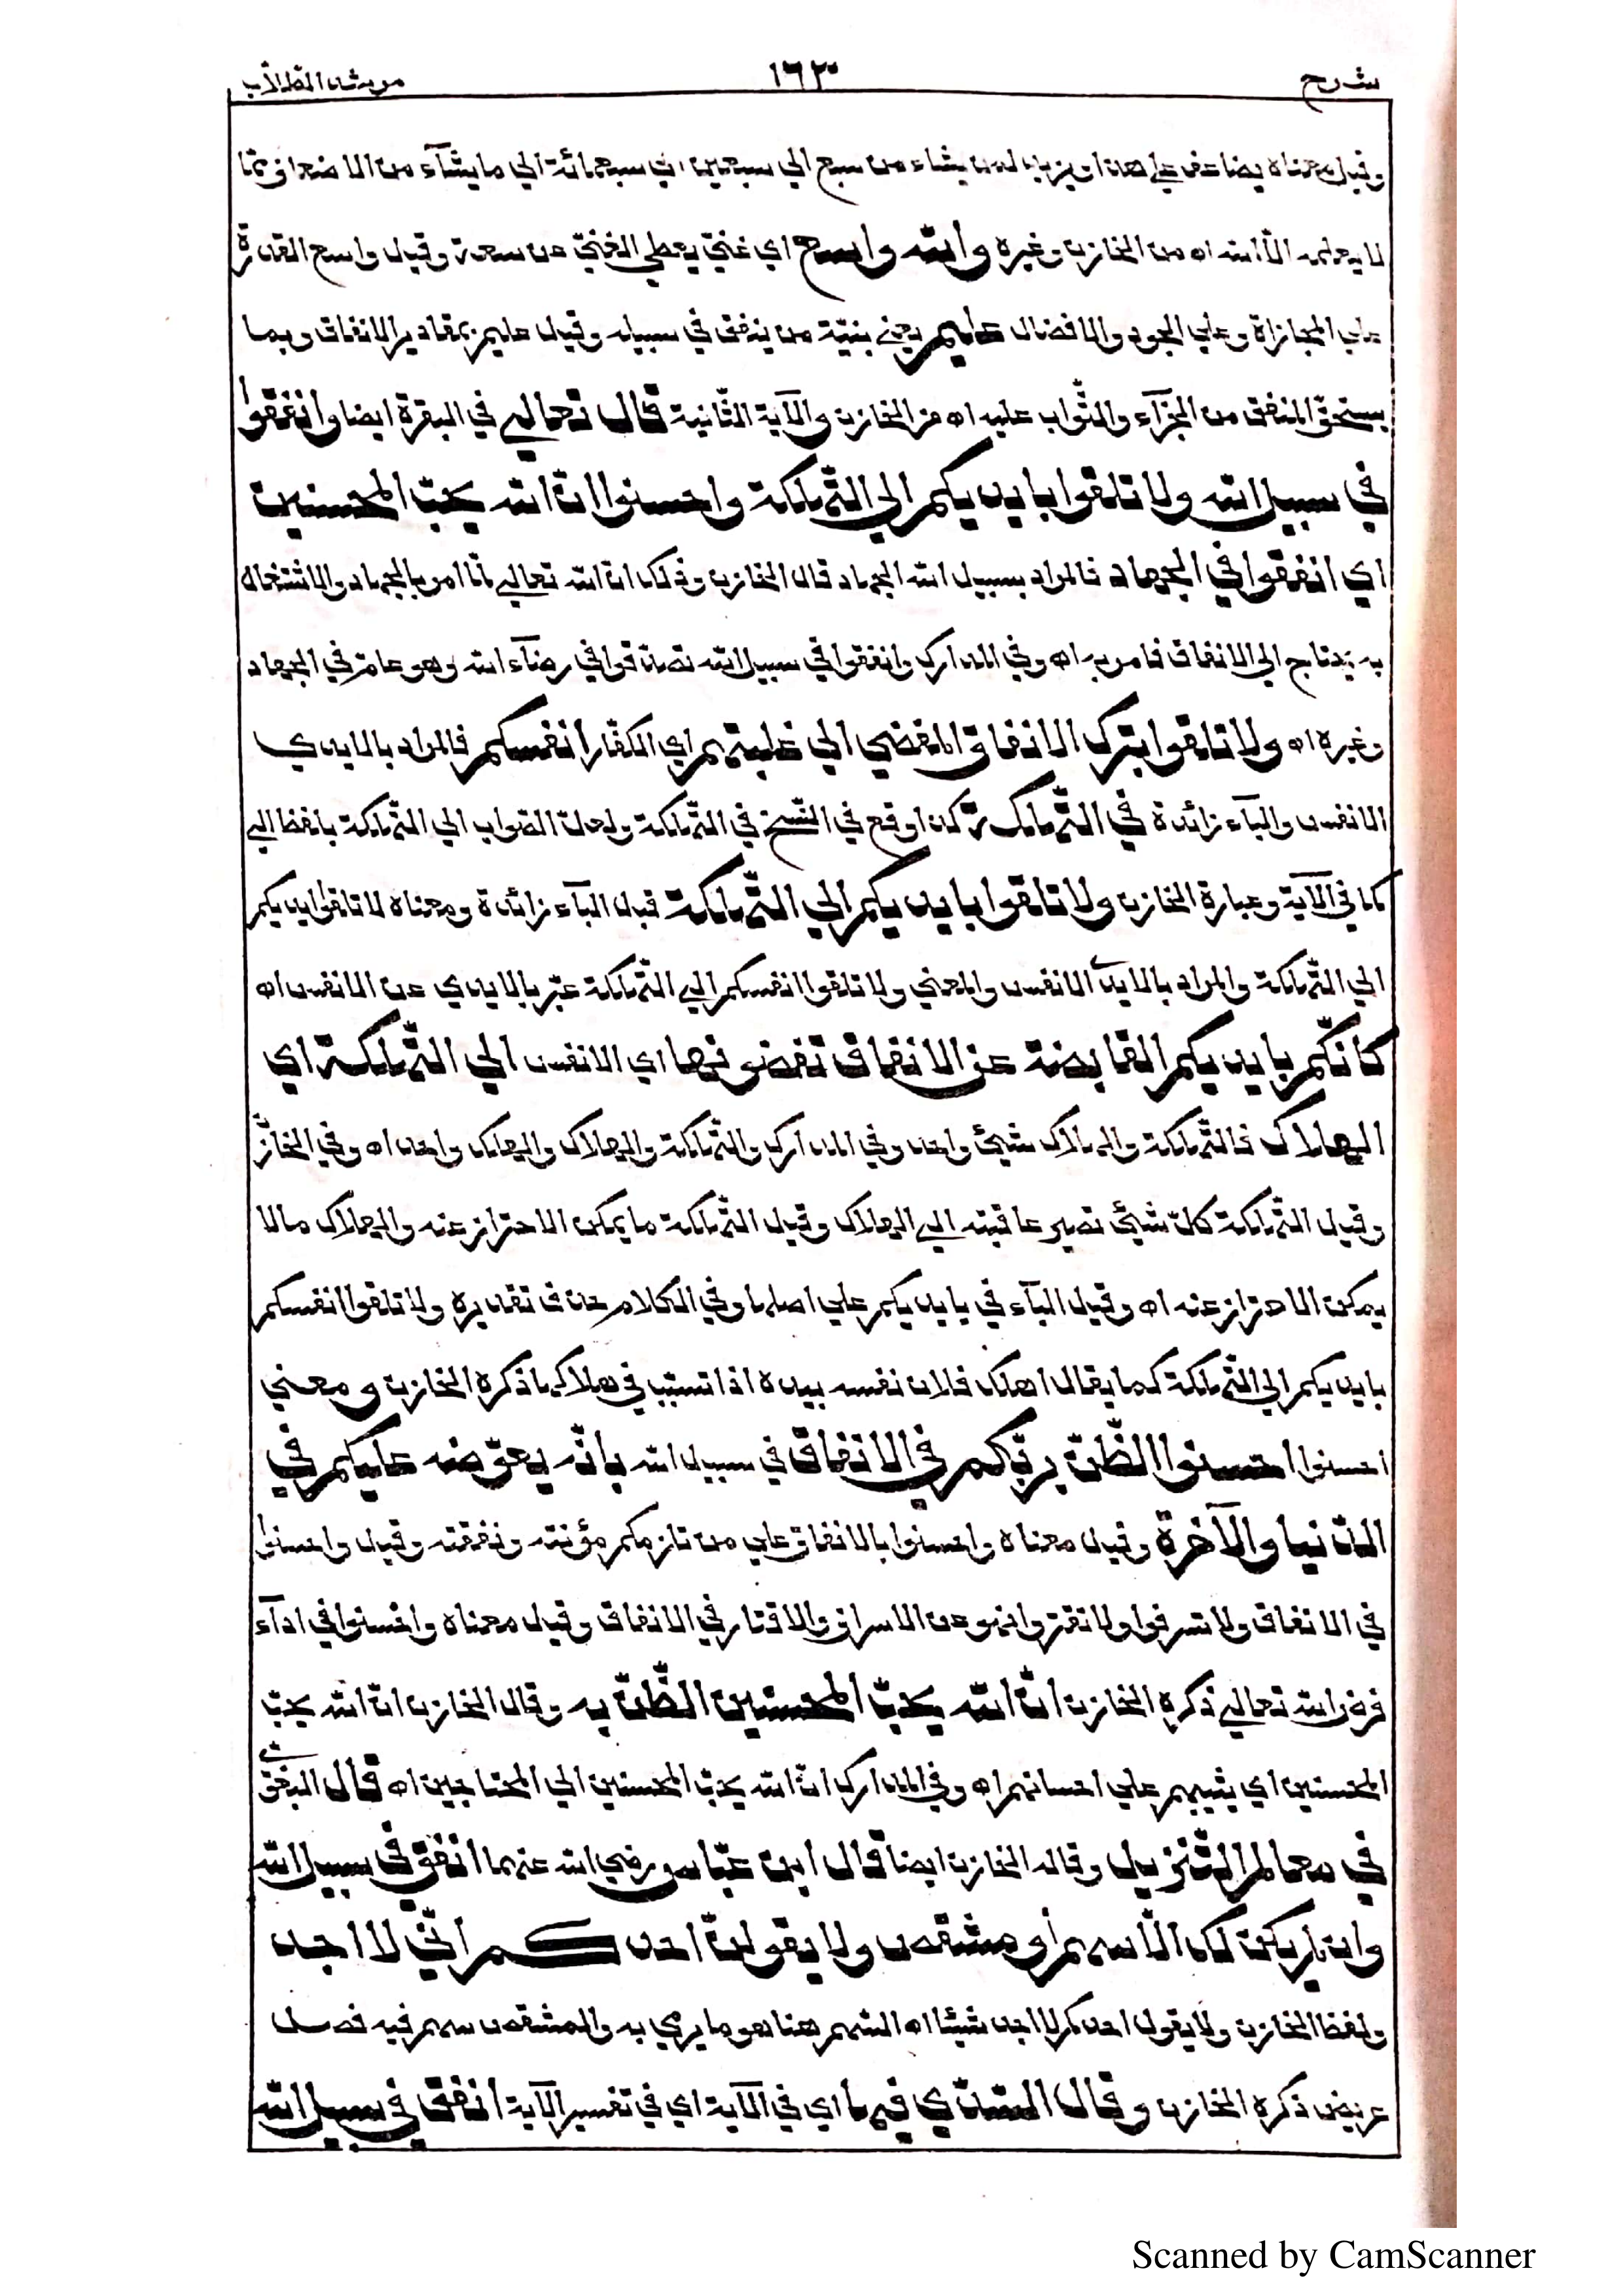 شرح ١٦٣ مرشد الطلاب
وقيل معناه يضاعف على هذا ويزيد لمن يشاء من سبع الي سبعين الي سبعمائة الي ما يشآء من الاضعاف ممّا
لا يعلمه الّا الله اه من الخازن وغيره والله واسع اي غنيّ يعطي الغنيّ عن سعة وقيل واسع القدرة
علي المجازاة وعلي الجود والافضال عليم يعني بنيّة من ينفق في سبيله وقيل عليم بمقادير الانفاق وبما
يستحقّ المنفق من الجزآء والثّواب عليه اه من الخازن والآية الثّانية قال تعالي في البقرة ايضا وانفقوا
في سبيل الله ولا تلقوا بايديكم الي التّهلكة واحسنوا انّ الله يحبّ المحسنين
اي انفقوا في الجهاد فالمراد بسبيل الله الجهاد قال الخازن وذلك انّ الله تعالي لمّا امر بالجهاد والاشتغال
به يحتاج الي الانفاق فامر به اه وفي المدارك وانفقوا في سبيل الله تصدّقوا في رضآء الله وهو عامّ في الجهاد
وغيره اه ولا تلقوا بترك الانفاق المفضي الي غلبتهم اي الكفّار انفسكم فالمراد بالايدي
الانفس والبآء زائدة في التّهلكة كذا وقع في النّسخ في التّهلكة ولعلّ الصّواب الي التّهلكة بلفظ الي
كما في الآية وعبارة الخازن ولا تلقوا بايديكم الي التّهلكة قيل البآء زائدة ومعناه لا تلقوا ايديكم
الي التّهلكة والمراد بالايدي الانفس والمعني ولا تلقوا انفسكم الي التّهلكة عبّر بالايدي عن الانفس اه
كانّكم بايديكم القابضة عن الانفاق تفضونها اي الانفس الي التّهلكة اي
الهلاك فالتّهلكة والهلاك شيئ واحد وفي المدارك والتّهلكة والهلاك والهلك واحد اه وفي الخازن
وقيل التّهلكة كلّ شيئ تصير عاقبته الي الهلاك وقيل التّهلكة ما يمكن الاحتراز عنه والهلاك ما لا
يمكن الاحتراز عنه اه وقيل البآء في بايديكم علي اصلها وفي الكلام حذف تقديره ولا تلقوا انفسكم
بايديكم الي التّهلكة كما يقال اهلك فلان نفسه بيده اذا تسبّب في هلاكها ذكره الخازن ومعني
احسنوا احسنوا الظّنّ بربّكم في الانفاق في سبيل الله بانّه يعوّضه عليكم في
الدّنيا والآخرة وقيل معناه واحسنوا بالانفاق علي من تلزمكم مؤنته ونفقته وقيل واحسنوا
في الانفاق ولا تسرفوا ولا تقتروا نهوا عن الاسراف والاقتار في الانفاق وقيل معناه واحسنوا في ادآء
فرض الله تعالي ذكره الخازن انّ الله يحبّ المحسنين الظّنّ به وقال الخازن انّ الله يحبّ
المحسنين اي يثيبهم علي احسانهم اه وفي المدارك انّ الله يحبّ المحسنين الي المحتاجين اه قال البغوي
في معالم التّنزيل وقاله الخازن ايضا قال ابن عبّاس رضي الله عنهما انفق في سبيل الله
وان لم يكن لك الّا سهم او مشقص ولا يقولنّ احدكم انّي لا اجد
ولفظ الخازن ولا يقول احدكم لا اجد شيئا اه السّهم هنا هو ما يرمي به والمشقص سهم فيه نصل
عريض ذكره الخازن وقال السّدّي فيها اي في الآية اي في تفسير الآية انفق في سبيل الله
Scanned by CamScanner